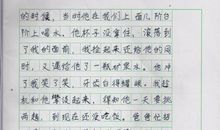 的时候，当时他在我们上面几阶台
阶上喝水，他杯子没拿住，滚落到
了我的面前，我捡起来还给他的同
时，又递给他了一瓶矿泉水。他冲
了我笑了笑，牙齿白得耀眼。我趁
机和他攀谈起来，得知他一天要挑
两趟，到现在还没吃饭。爸爸忙招